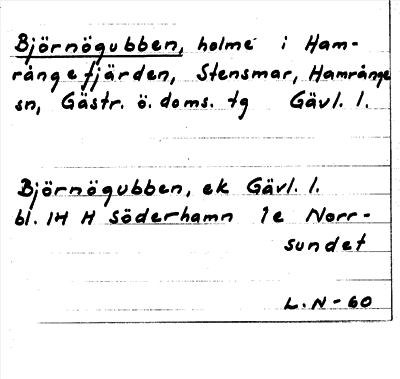 Björnögubben, holme i Ham-
rångefjärden, Stensmar, Hamrånge
sn, Gästr. ö. doms. tg Gävl. l.
Björnögubben, ek Gävl. l.
bl. 14 H Söderhamn 1e Norr-
sundet
L. N - 60